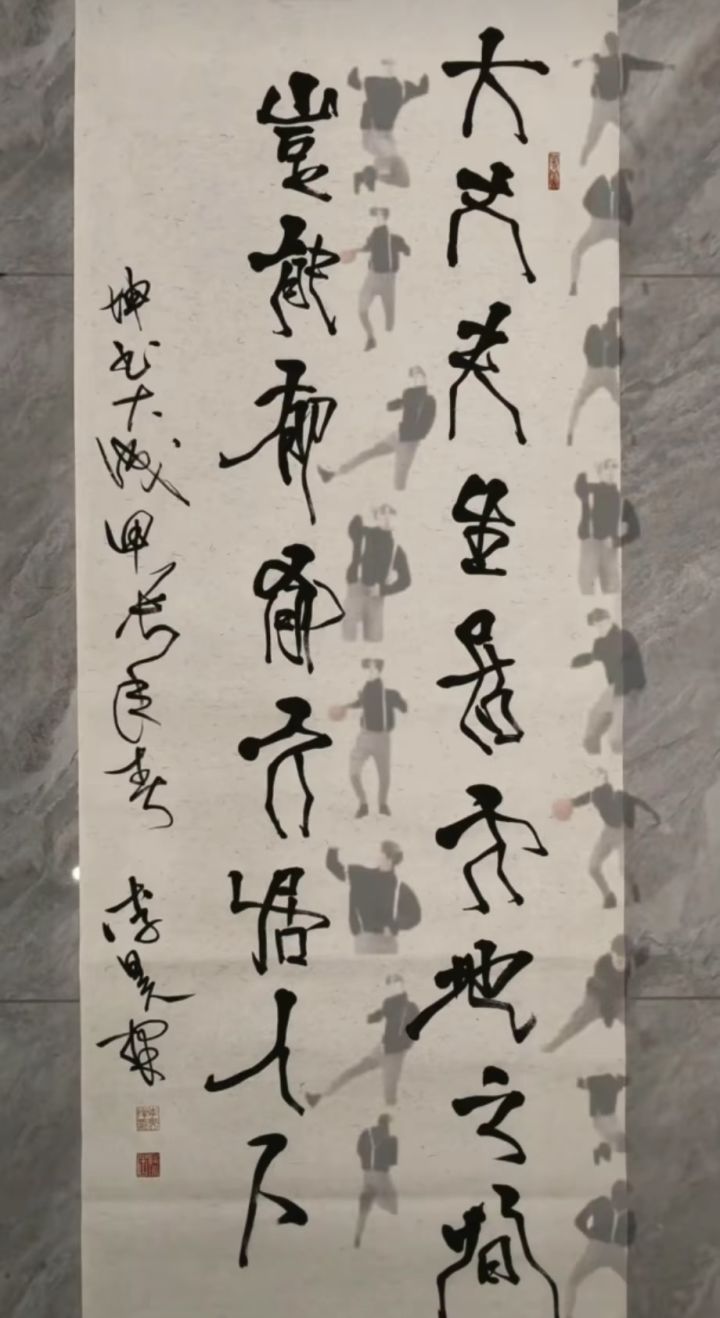 大丈夫生居天地之間
豈能郁郁久居人下
坤 甲辰年春 李昊